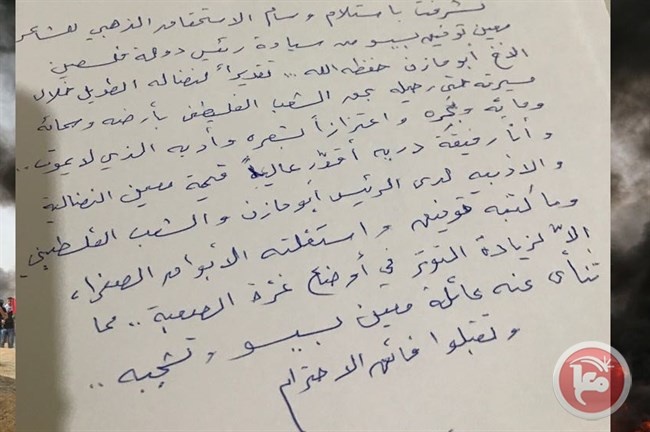 تشرفت باستلام وسام الاستحقاق الذهبي للشاعر
معين توفيق بسيسو من سيادة رئيس دولة فلسطين
الأخ أبو مازن حفظه الله ... تقديراً لنضاله الطويل خلال
مسيرته حتى رحيله بحق الشعب الفلسطيني بأرضه وسمائه
ومائه وبحره واعتزازاً لشعره وأدبه الذي لا يموت ..
وأنا رفيقة دربه أقدّر عالياً قيمة معين النضالية
والأدبية لدى الرئيس أبو مازن والشعب الفلسطيني
وما كتبه توفيق واستغلته الأبواق الصفراء،
إلاّ لزيادة التوتر في أوضاع غزة الصعبة .. مما
تنأى عنه عائلة معين بسيسو وتشجبه ..
وتقبلوا فائق الاحترام
معا